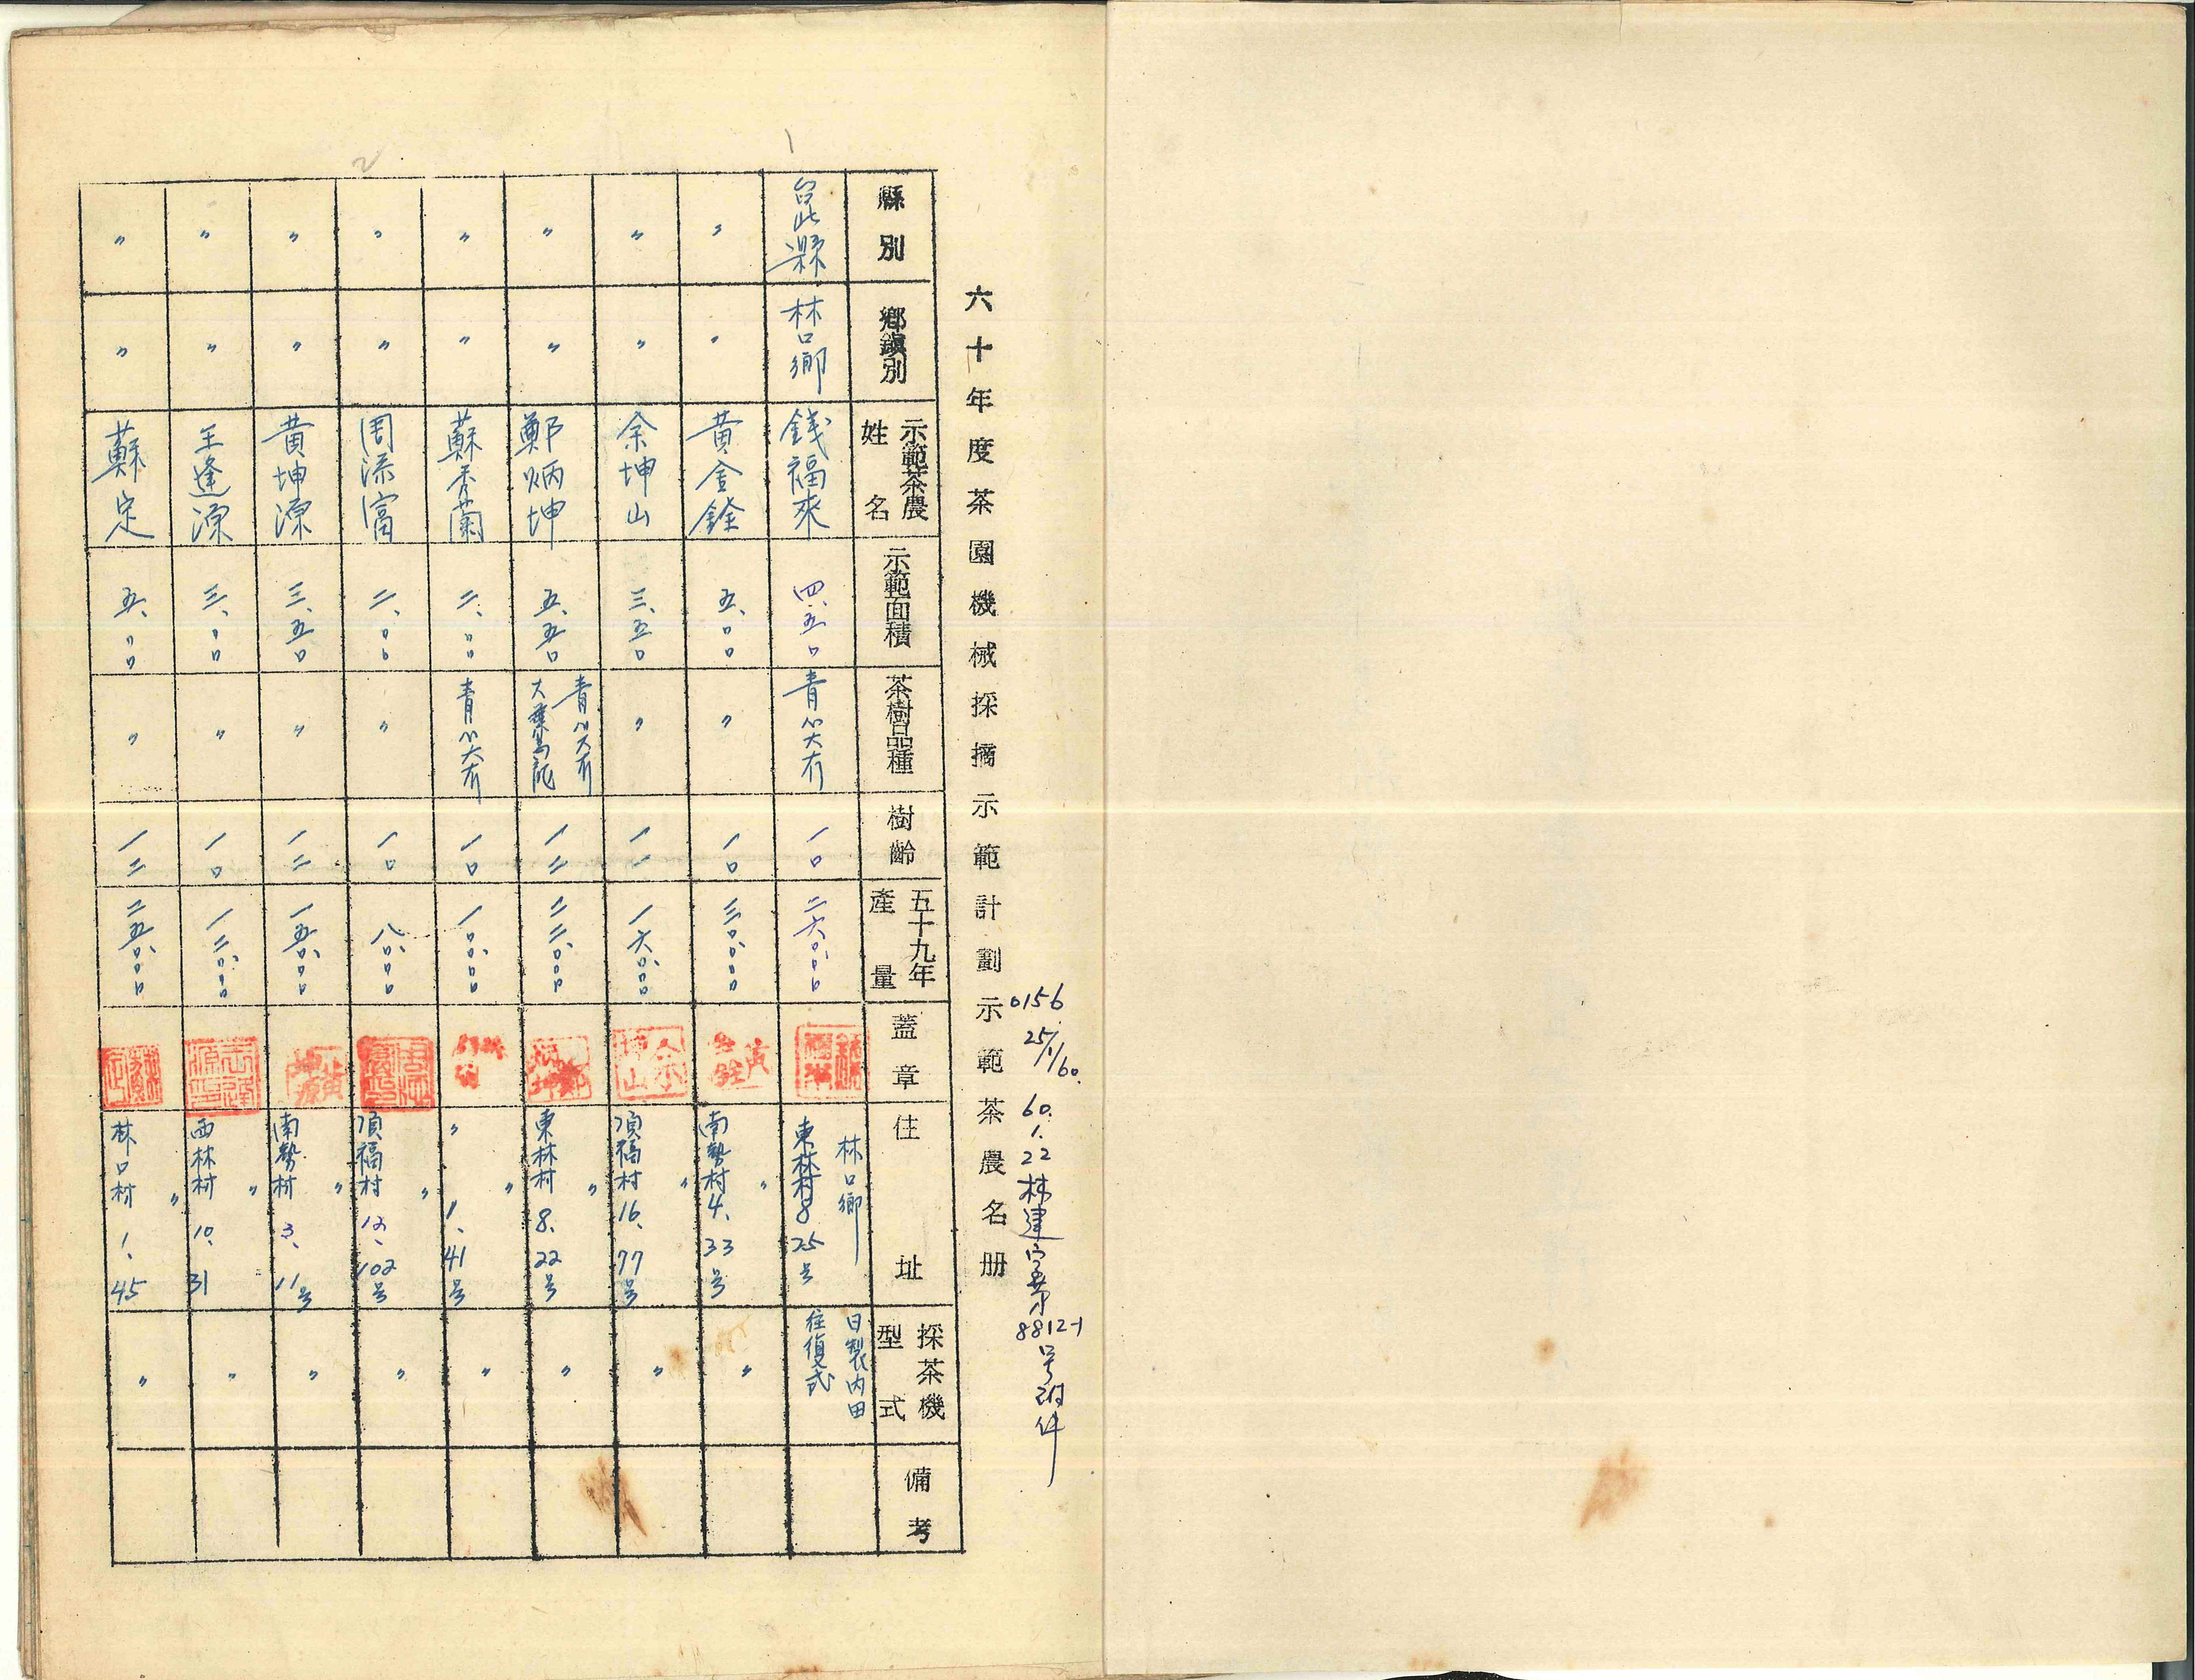 0156
25/1/60.
60.1.22林建字第8812-1号附件
六十年度茶園機械採摘示範計劃示範茶農名册
縣別 鄉鎮別 示範茶農姓名 示範面積 茶樹品種 樹齡 五十九年產量 蓋章 住址 採茶機型式 備考
1
台北縣 林口鄉 錢福來 四.五〇 青心大冇 一〇 二六.〇〇〇 林口鄉東林村8 25号 日製內田往復式
〃 〃 黃金銓 五.〇〇 〃 一〇 三〇.〇〇〇 黃金銓 〃南勢村4.33号 〃
〃 〃 余坤山 三.五〇 〃 一一 一六.〇〇〇 余坤山 〃頂福村16.77号 〃
〃 〃 鄭炳坤 五.五〇 青心大冇 大葉烏龍 一二 二二.〇〇〇 〃東林村8.22号 〃
〃 〃 蘇秀蘭 二.〇〇 青心大冇 一〇 一〇.〇〇〇 〃 〃 1.41号 〃
2
〃 〃 周添富 二.〇〇 〃 一〇 八.〇〇〇 周添富印 〃頂福村12.102号 〃
〃 〃 黃坤源 三.五〇 〃 一二 一五.〇〇〇 黃坤源 〃南勢村3.11号 〃
〃 〃 王逢源 三.〇〇 〃 一〇 一二.〇〇〇 王逢源印 〃西林村10.31 〃
〃 〃 蘇定 五.〇〇 〃 一二 二五.〇〇〇 蘇定 〃林口村1.45 〃